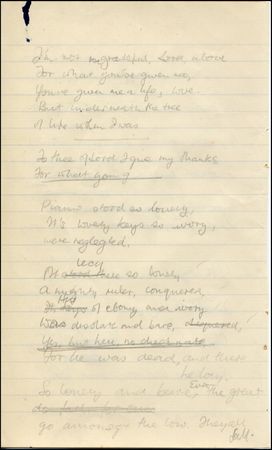 I'm not ungrateful, Lord above
For what you've given me,
You've given me a life, love
But underneath the tree
of life when I was
To thee O Lord I give my thanks
For what
Piano stood so lonely,
It's lovely keys so ivory,
were neglected,
so lonely
A mighty ruler, conquered,
of ebony and ivory
desolate and bare,
Yes, but here, no
For he was dead, and there
he lay,
So lonely and bare, Even the great
go amongst the low. They all